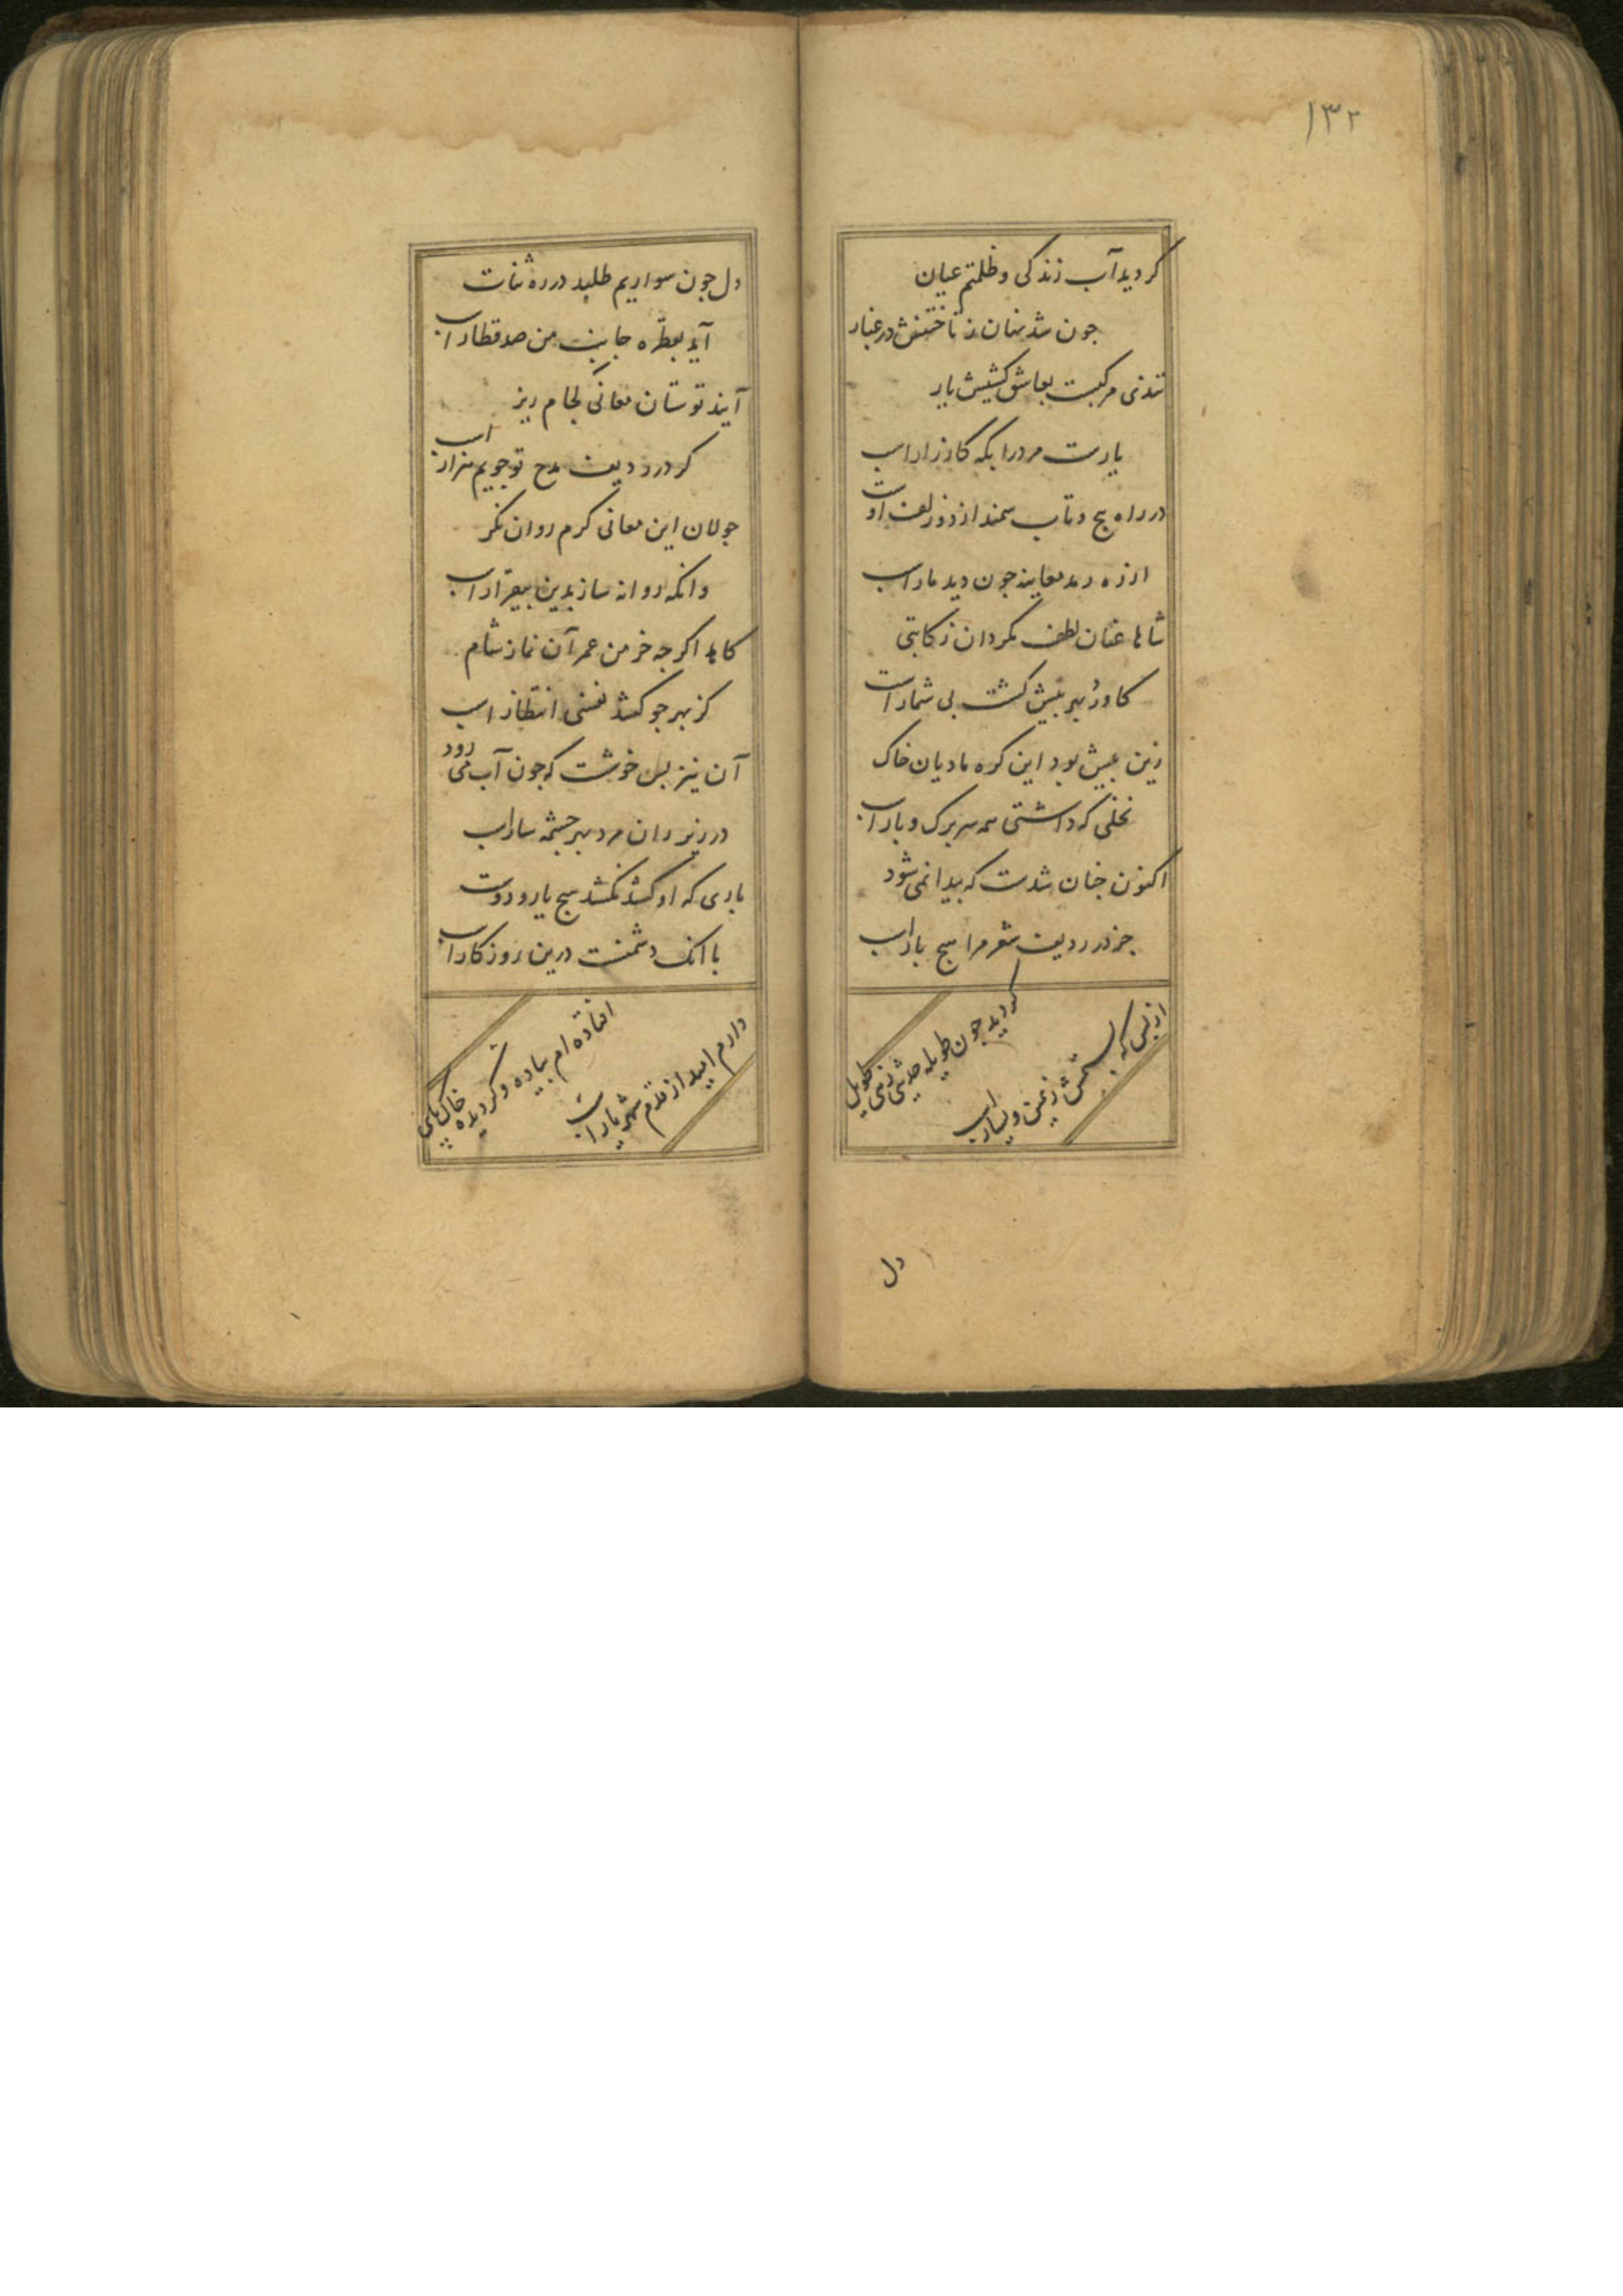 ۱۳۲
کردید آب زندکی و ظلمتم عیان
جون شد نهان ز تاختنش در غبار
تندی مرکبت بعاشق کشیش یار
یارست مرد را بکه کارزار اسب
در راه بیج و تاب سمند از دو زلف اوست
از ره رمد معاینه جون دید مار اسب
شاها عنان لطف مکردان ز کاتبی
کاورد بهر بیش کشت بی شمار اسب
زین بیش بود این کره مادیان خاک
نخلی که داشتی همه بر برک و بار اسب
اکنون جنان شدست که بیدا نمی شود
جز در ردیف شعر مرا هیج بار اسب
از بس که بستمش ز یمین و یسار اسب
کردید جون طویله حدیثی طویل
دل
دل جون سواریم طلبد در ره ثنات
آید بقطره جانب من صد قطار اسب
آیند توسنان معانی لجام ریز
کر در ردیف مدح تو جویم هزار اسب
جولان این معانی کرم روان نکر
وانکه روانه ساز بدین بیقرار اسب
کاهد اکرجه خرمن عمر آن نماز شام
کز بهر جو کشد نفسی انتظار اسب
آن نیز بس خوشست که جون آب می رود
در زیر ران مرد بهر جشمه سار اسب
باری که او کشد نکشد هیج یار و دوست
با انک دشمنست درین روزکار اسب
افتاده ام بیاده و کردیده خاک پای
دارم امید از قدم شهریار اسب